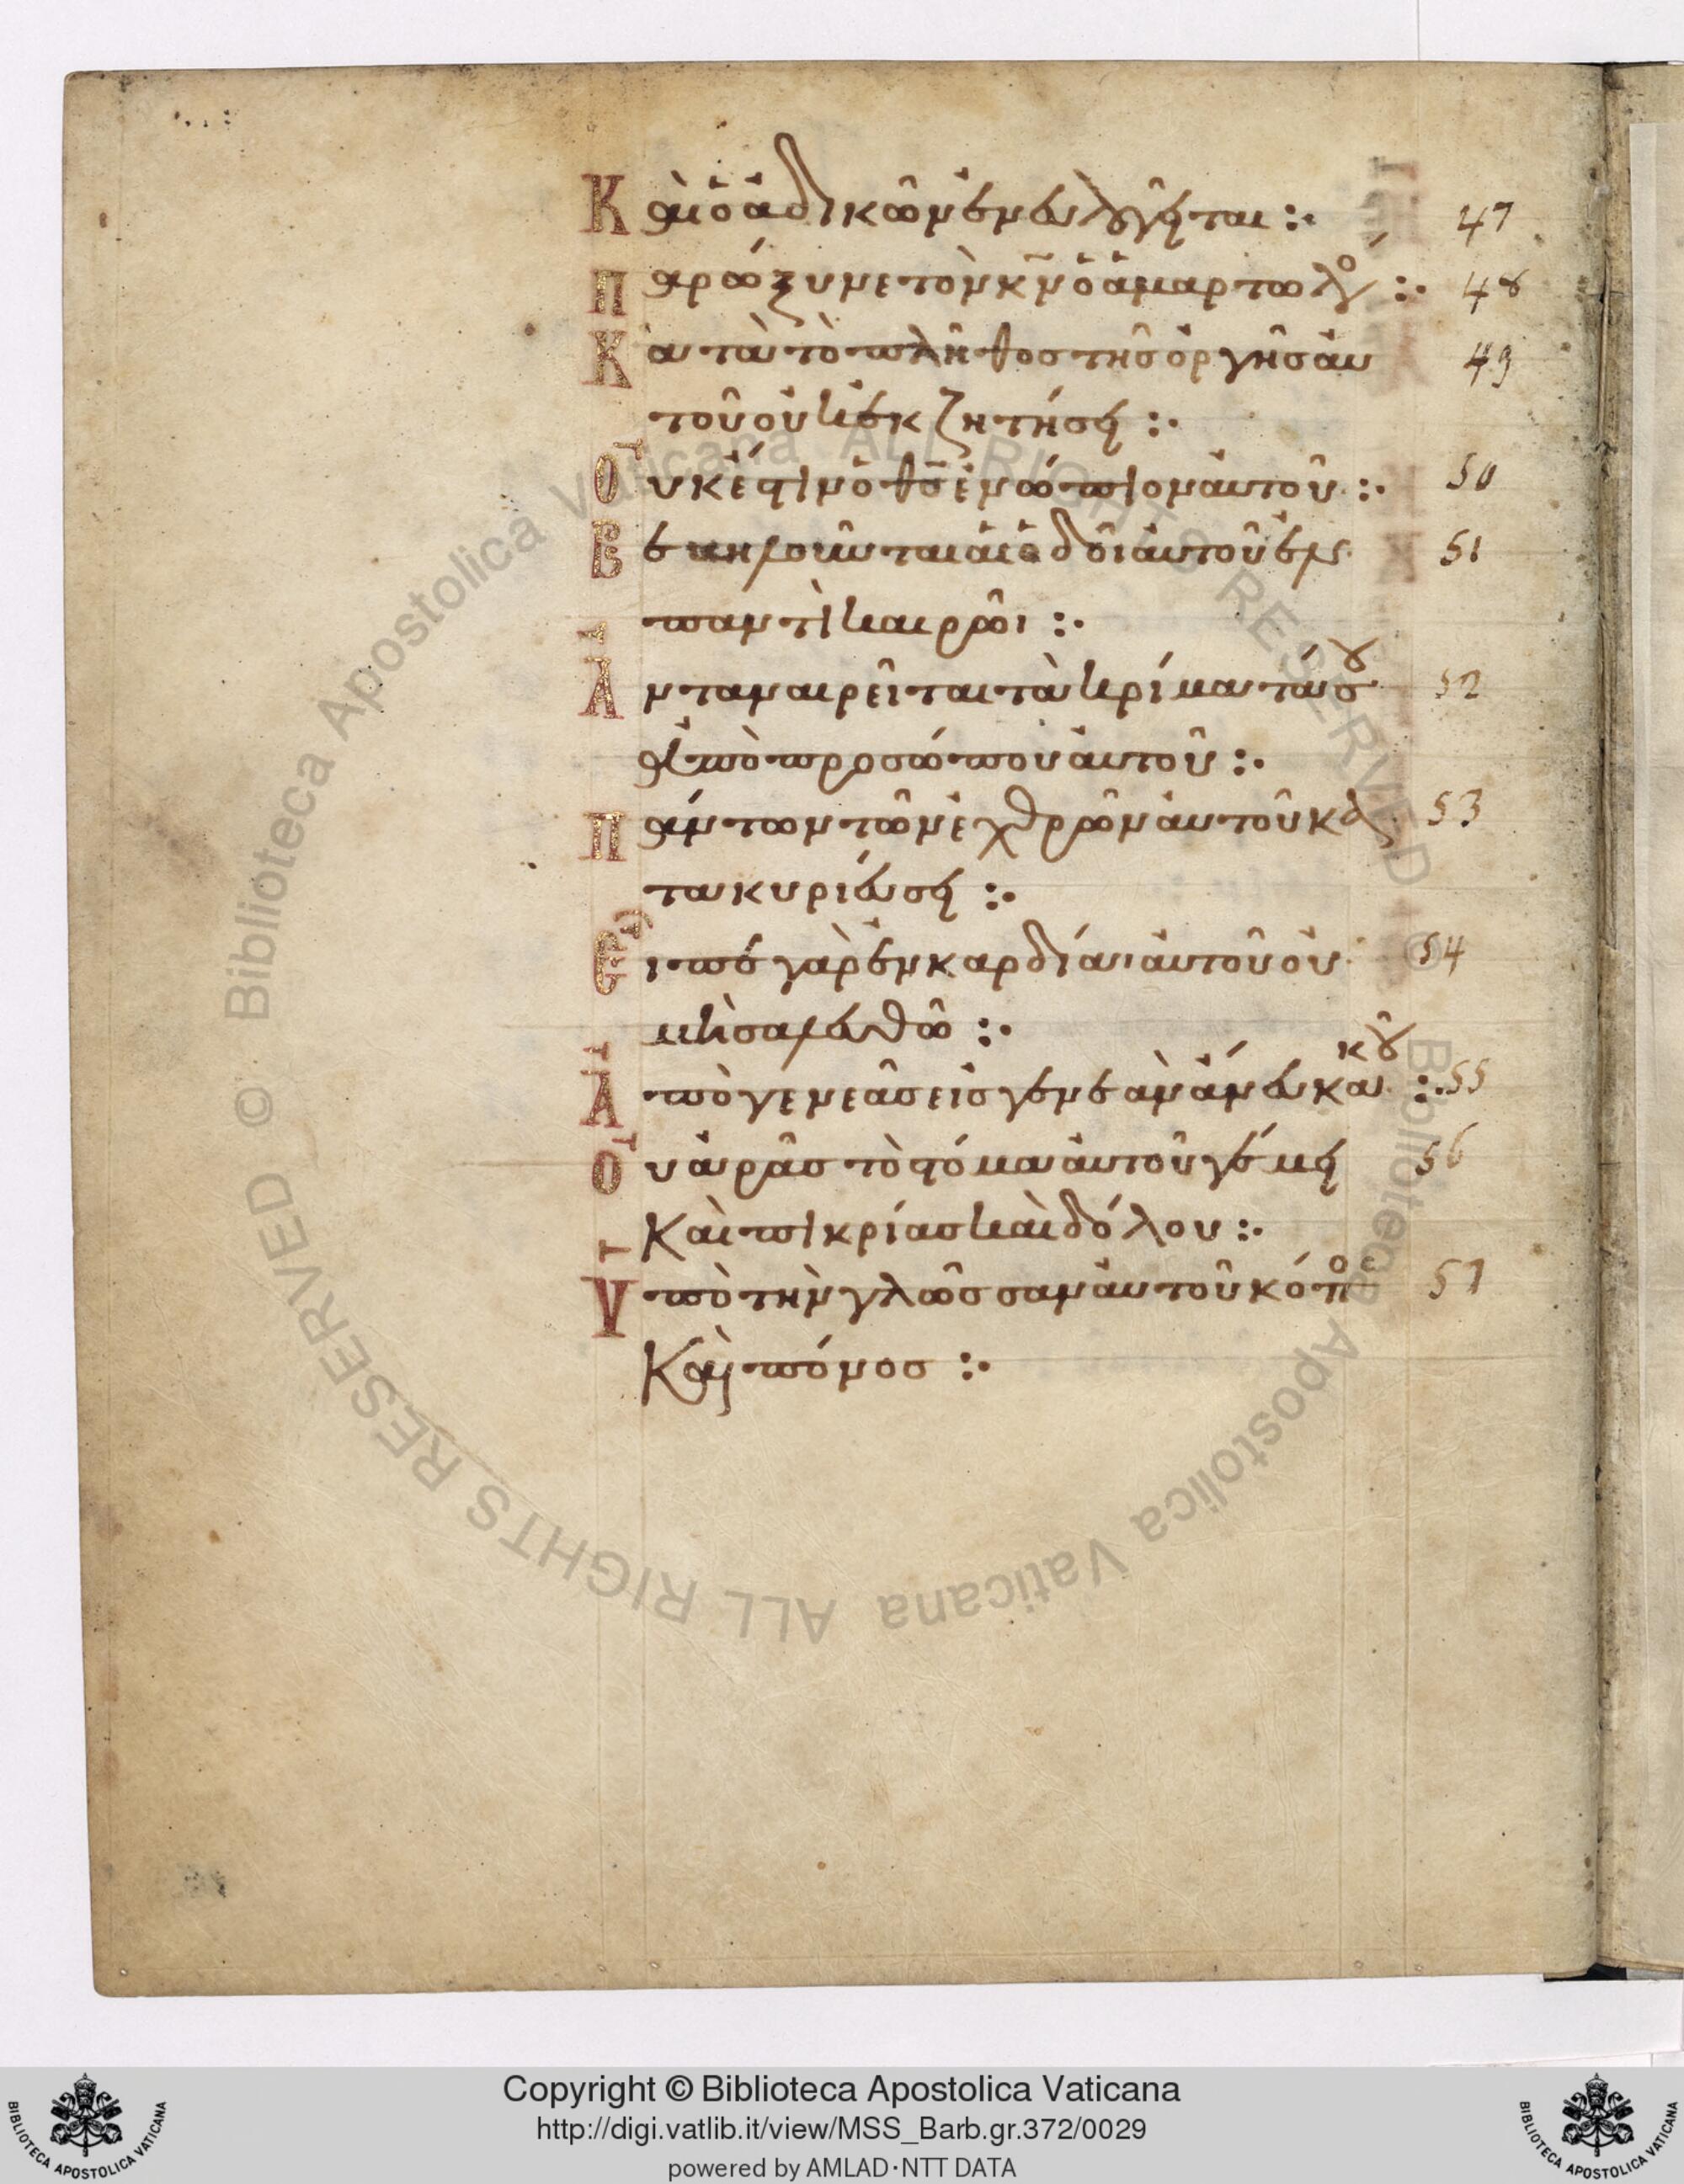 Καὶ ὁ ἀδικῶν ἐνευλογεῖται :· 47
Παρώξυνε τὸν κν ὁ ἁμαρτωλός :· 48
Κατὰ τὸ πλῆθος τῆς ὀργῆς αὐ 49
τοῦ οὐκ ἐκζητήσει :·
Οὐκ ἔστιν ὁ θς ἐνώπιον αὐτοῦ :· 50
Βεβηλοῦνται αἱ ὁδοὶ αὐτοῦ ἐν 51
παντὶ καιρῶι :·
Ἀνταναιρεῖται τὰ κρίματά σου 52
ἀπὸ προσώπου αὐτοῦ :·
Πάντων τῶν ἐχθρῶν αὐτοῦ κα 53
τακυριεύσει :·
Εἶπε γὰρ ἐν καρδίαι αὐτοῦ οὐ 54
μὴ σαλευθῶ :·
Ἀπὸ γενεᾶς εἰς γενεὰν ἄνευ κακοῦ :· 55
Οὗ ἀρᾶς τὸ στόμα αὐτοῦ γέμει 56
Καὶ πικρίας καὶ δόλου :·
Ὑπὸ τὴν γλῶσσαν αὐτοῦ κόπος 57
Καὶ πόνος :·
Copyright © Biblioteca Apostolica Vaticana
http://digi.vatlib.it/view/MSS_Barb.gr.372/0029
powered by AMLAD·NTT DATA
BIBLIOTECA APOSTOLICA VATICANA
BIBLIOTECA APOSTOLICA VATICANA
© Biblioteca Apostolica Vaticana ALL RIGHTS RESERVED
© Biblioteca Apostolica Vaticana ALL RIGHTS RESERVED